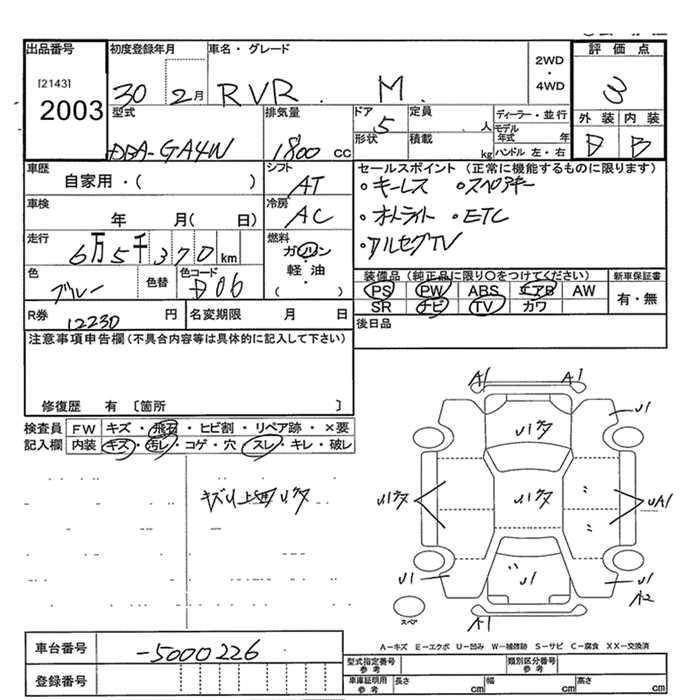 出品番号 初度登録年月 車名・グレード 2WD・4WD 評価点
[2143]
2003 30 2月 RVR. M. 3
型式 排気量 ドア 5 定員 人 ディーラー・並行 外装 内装
DBA-GA4W 1800 cc 形状 積載 kg モデル年式 年 D B
ハンドル 左・右
車歴 シフト セールスポイント (正常に機能するものに限ります)
自家用・( ) AT 。キーレス 。スペアキー
車検 冷房 。オートライト ・ETC
年 月( 日) AC ・フルセグTV
走行 燃料
6万5千370km ガソリン
軽油
( )
色 色替 色コード 装備品 (純正品に限り○をつけてください) 新車保証書
ブルー D06 PS PW ABS エアB AW 有・無
SR ナビ TV カワ
R券 12230 円 名変期限 月 日 後日品
注意事項申告欄 (不具合内容等は具体的に記入して下さい)
修復歴 有 〔箇所 〕
検査員 FW キズ・飛石・ヒビ割・リペア跡・×要
記入欄 内装 キズ・汚レ・コゲ・穴・スレ・キレ・破レ
A1 A1
U1
A1
U1 U1
U1
A2
スペア
A1
A-キズ E-エクボ U-凹み W-補修跡 S-サビ C-腐食 XX-交換済
車台番号 -5000226
登録番号
型式指定番号 参考 類別区分番号 参考
車庫証明用 参考 長さ cm 幅 cm 高さ cm